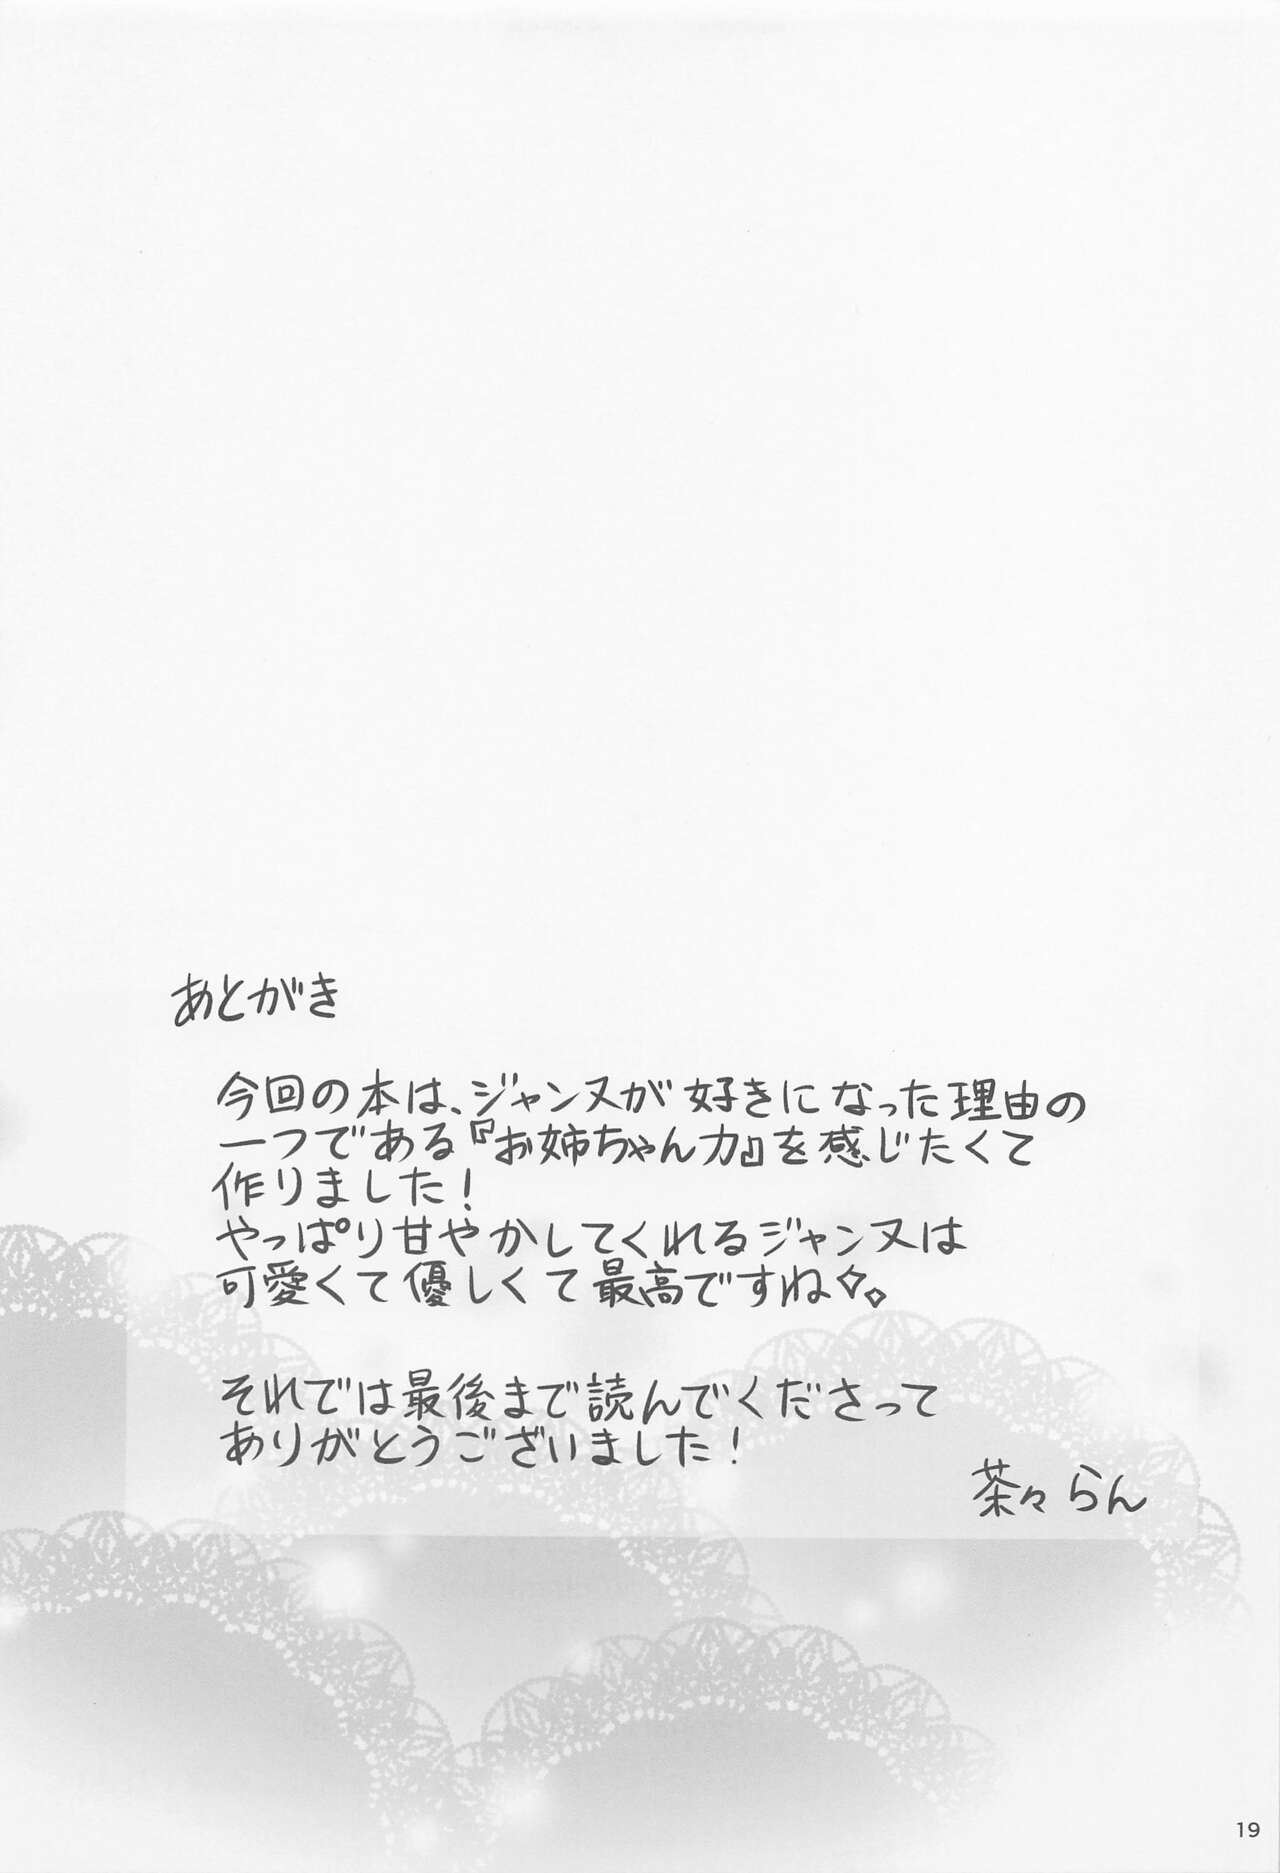 あとがき
今回の本は、ジャンヌが好きになった理由の
一つである『お姉ちゃん力』を感じたくて
作りました！
やっぱり甘やかしてくれるジャンヌは
可愛くて優しくて最高ですね✧。
それでは最後まで読んでくださって
ありがとうございました！
茶々らん
19